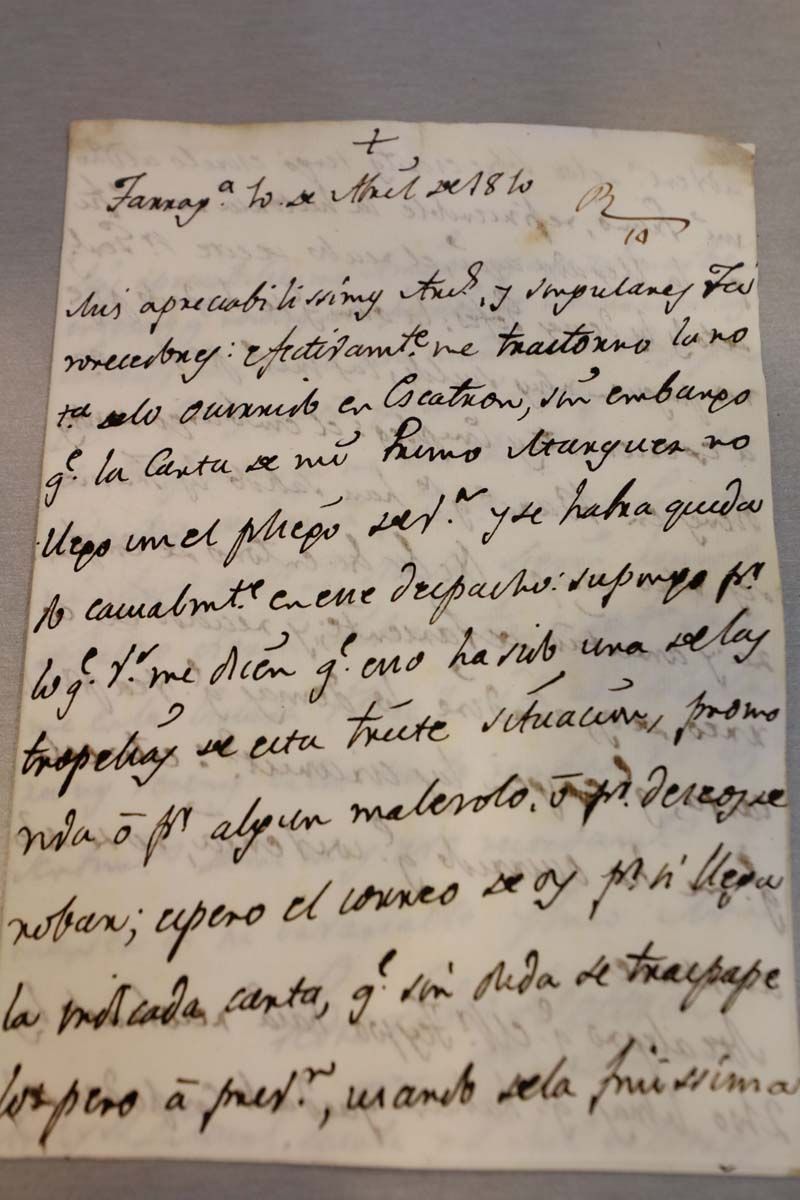 +
Tarrag.ª 10 de Abril de 1810
R
10
Mis apreciabilissimos Am.s, y singulares Fa
vorecedores: efectivam.te me trastorno la no
t.ª de lo ocurrido en Escatron, sin embargo
q.e la Carta de mi Primo Marquez no
llego con el pliego de V.s y se habra queda
do casualm.te en ese despacho: supongo p.r
lo q.e V.s me dicen q.e eso ha sido una de las
tropelias de esta triste situacion, promo
vida ó p.r algun malevolo, ó p.r deseos de
robar; espero el correo de oy p.r si llega
la indicada carta, q.e sin duda se traspape
lo pero á V.s, usando de la